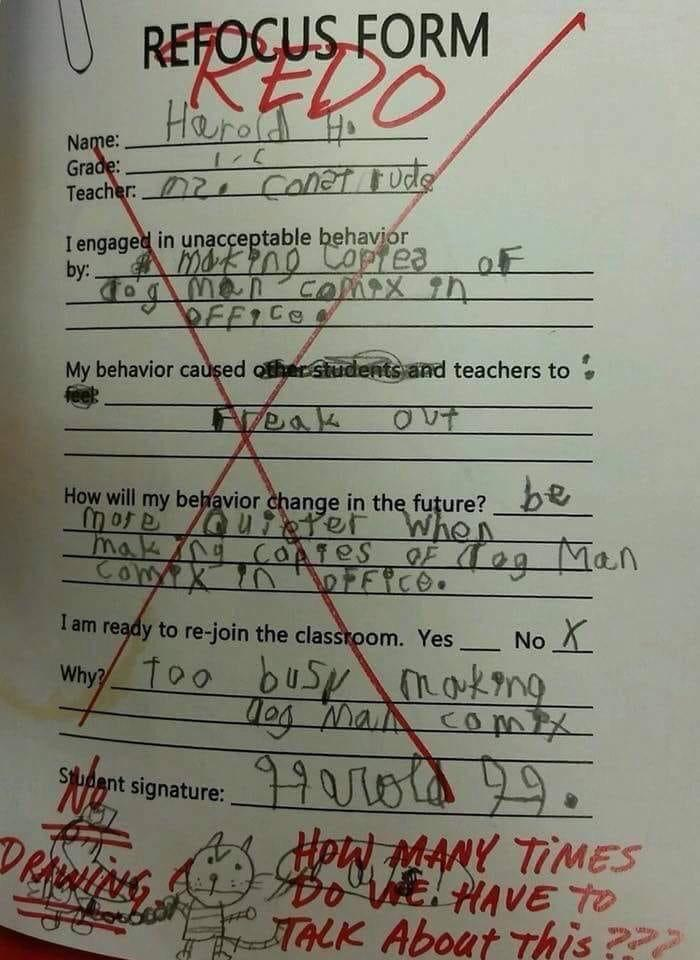 REFOCUS FORM
REDO
Name: Harold H.
Grade: 1st
Teacher: mz. Construde
I engaged in unacceptable behavior
by: making copies of
dog man comix in
office.
My behavior caused other students and teachers to :
feel:
Freak out
How will my behavior change in the future? be
more Quieter when
making copies of dog Man
comix in office.
I am ready to re-join the classroom. Yes ___ No X
Why? too busy making
dog Man comix
Student signature: Harold H.
NO
DRAWING
HOW MANY TIMES
DO WE HAVE TO
TALK About This ???